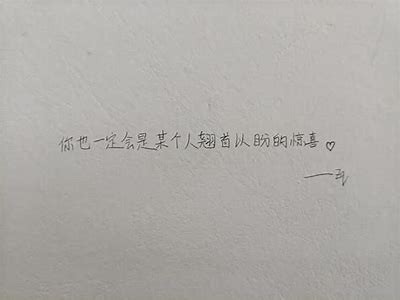 你也一定会是某个人翘首以盼的惊喜♡